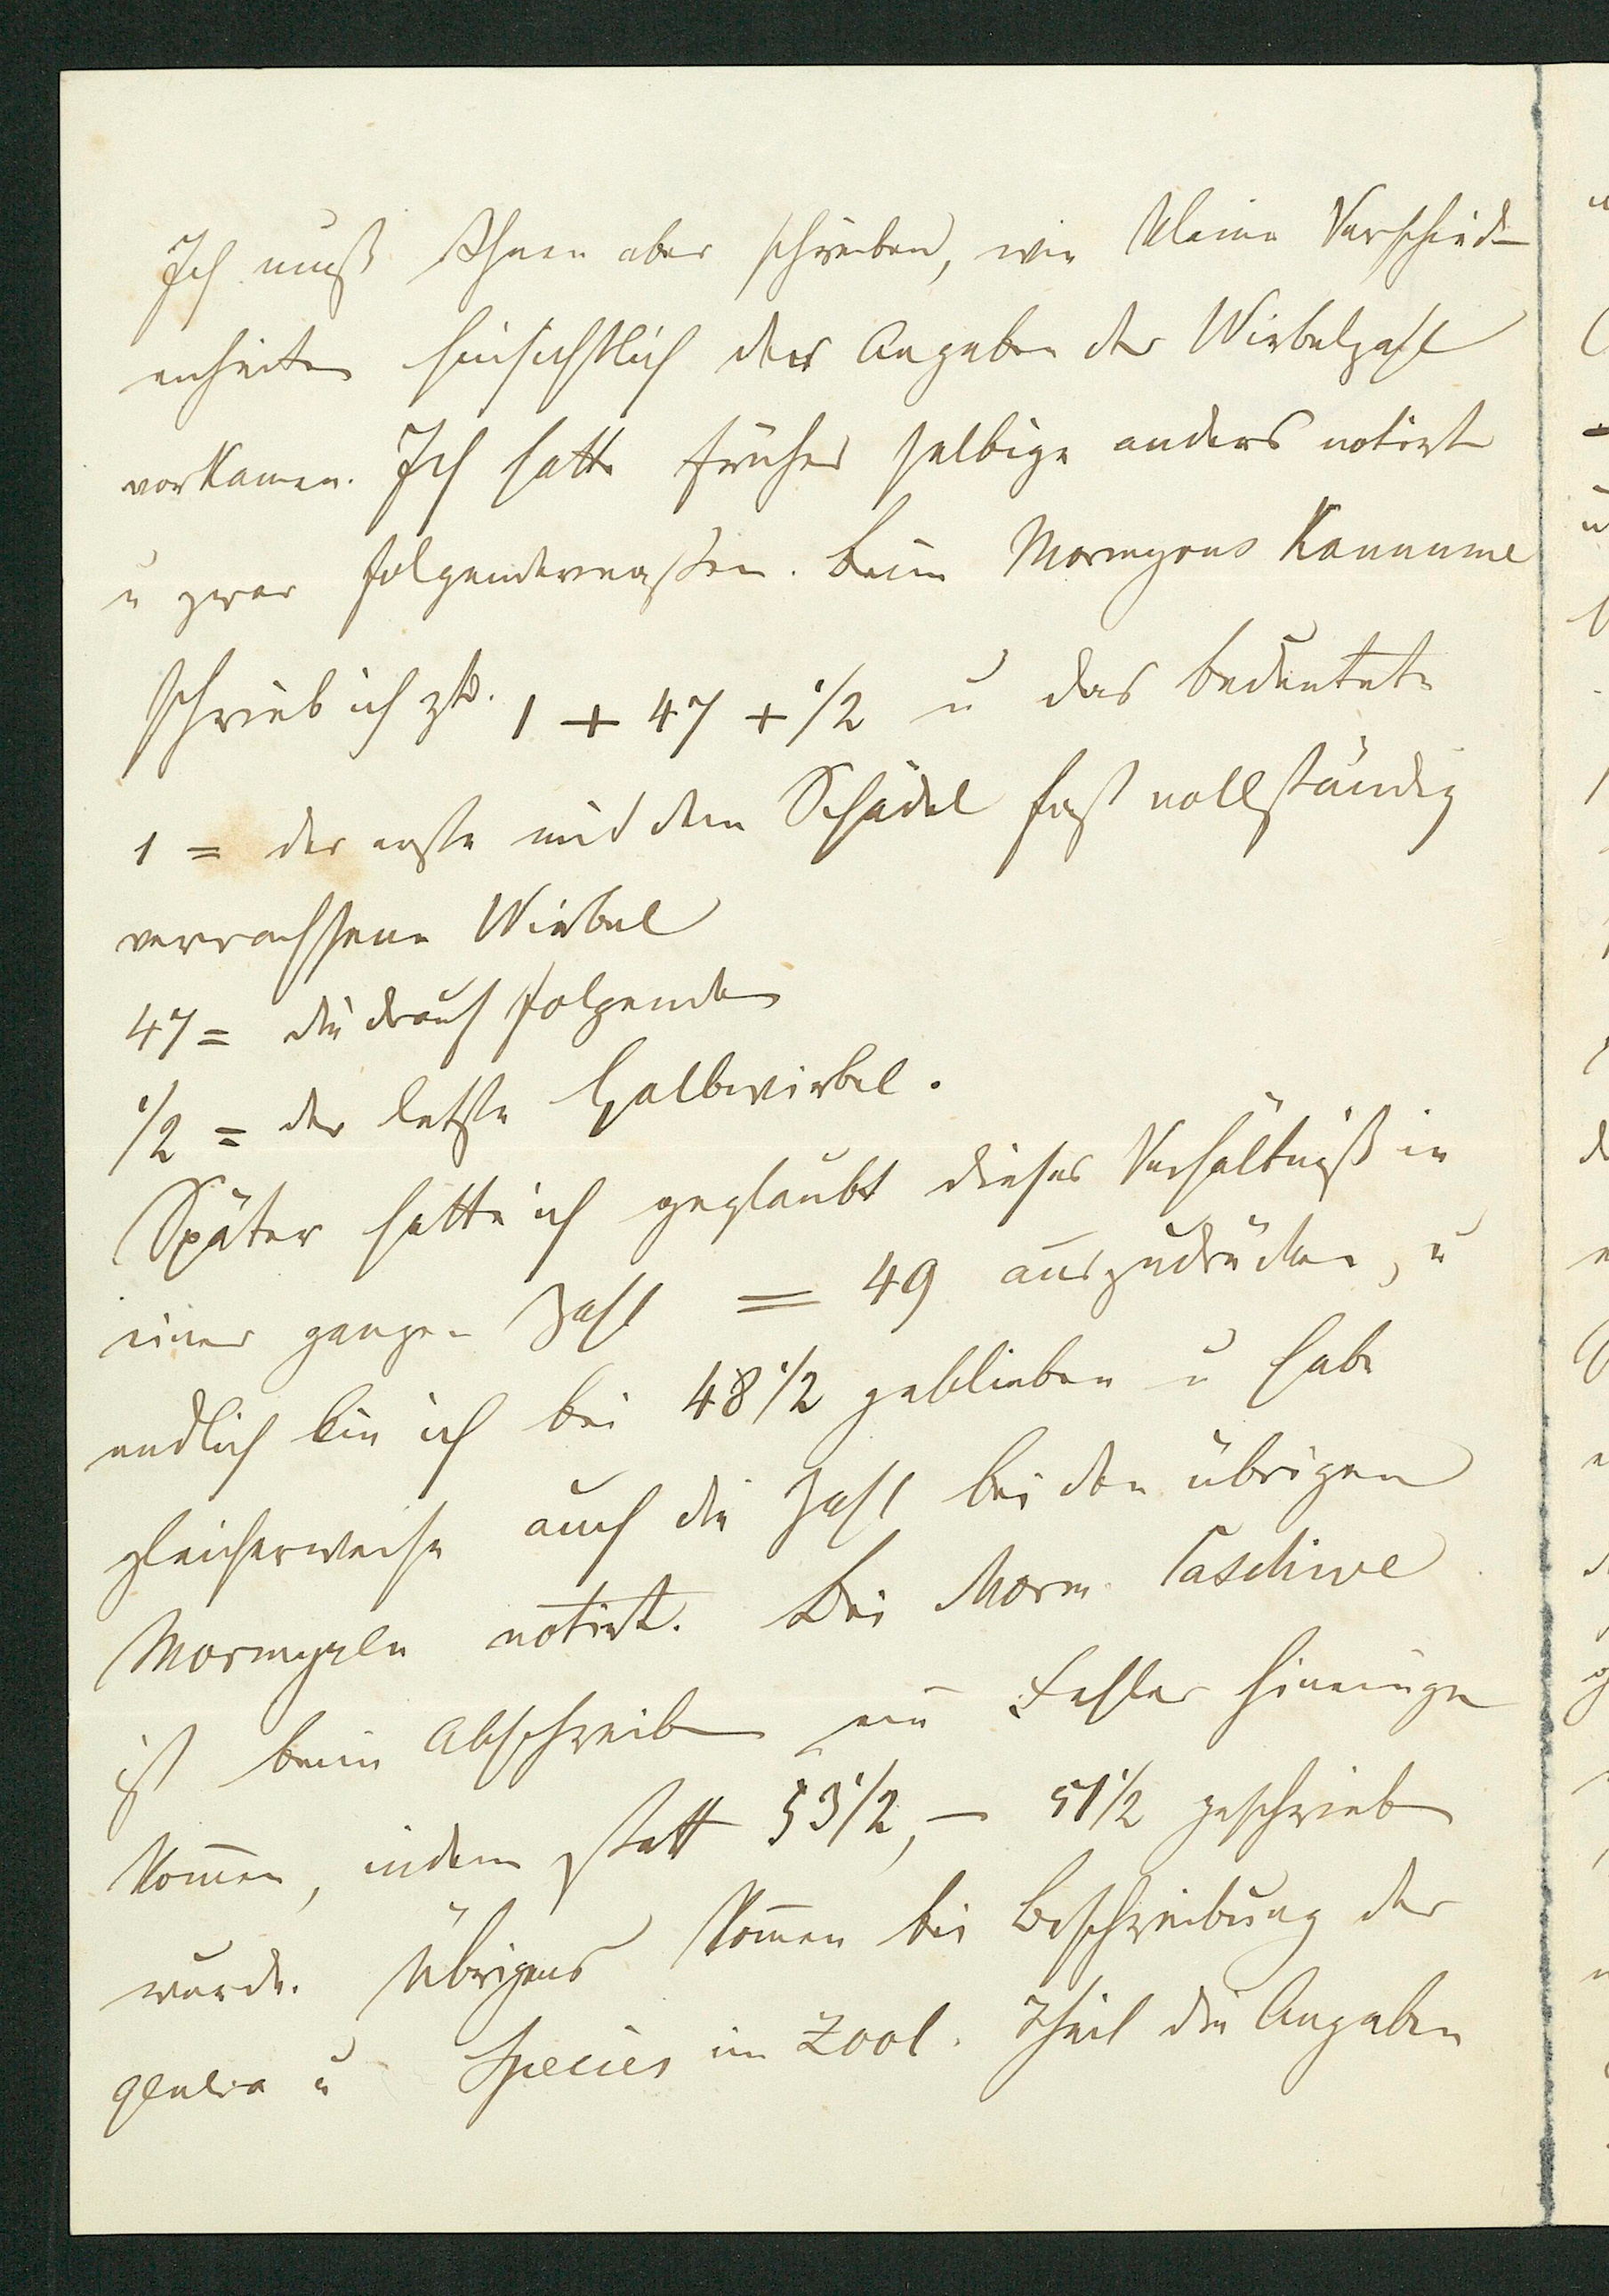 Ich muß Ihnen aber schreiben, wie kleine Verschied-
enheiten hinsichtlich der Angaben der Wirbelzahl
vorkamen. Ich hatte früher selbige anders notirt
u zwar folgendermaßen. beim Mormyrus Kannume
schrieb ich zB. 1 + 47 + 1/2 u das bedeutete
1 = der erste mit dem Schädel fast vollständig
verwachsene Wirbel
47 = die drauf folgenden
1/2 = der letzte Halbwirbel.
Später hatte ich geglaubt dieses Verhältniß in
einer ganzen Zahl = 49 auszudrücken, u
endlich bin ich bei 48 1/2 geblieben u habe
gleicherweise auch die Zahl bei den übrigen
Mormyren notirt. Bei Morm. Caschive
ist beim Abschreiben ein Fehler hineinge
kom̄en, indem statt 53 1/2, – 51 1/2 geschrieben
wurde. Übrigens kom̄en bei Beschreibung der
Genera u Species im Zool. Theil die Angaben